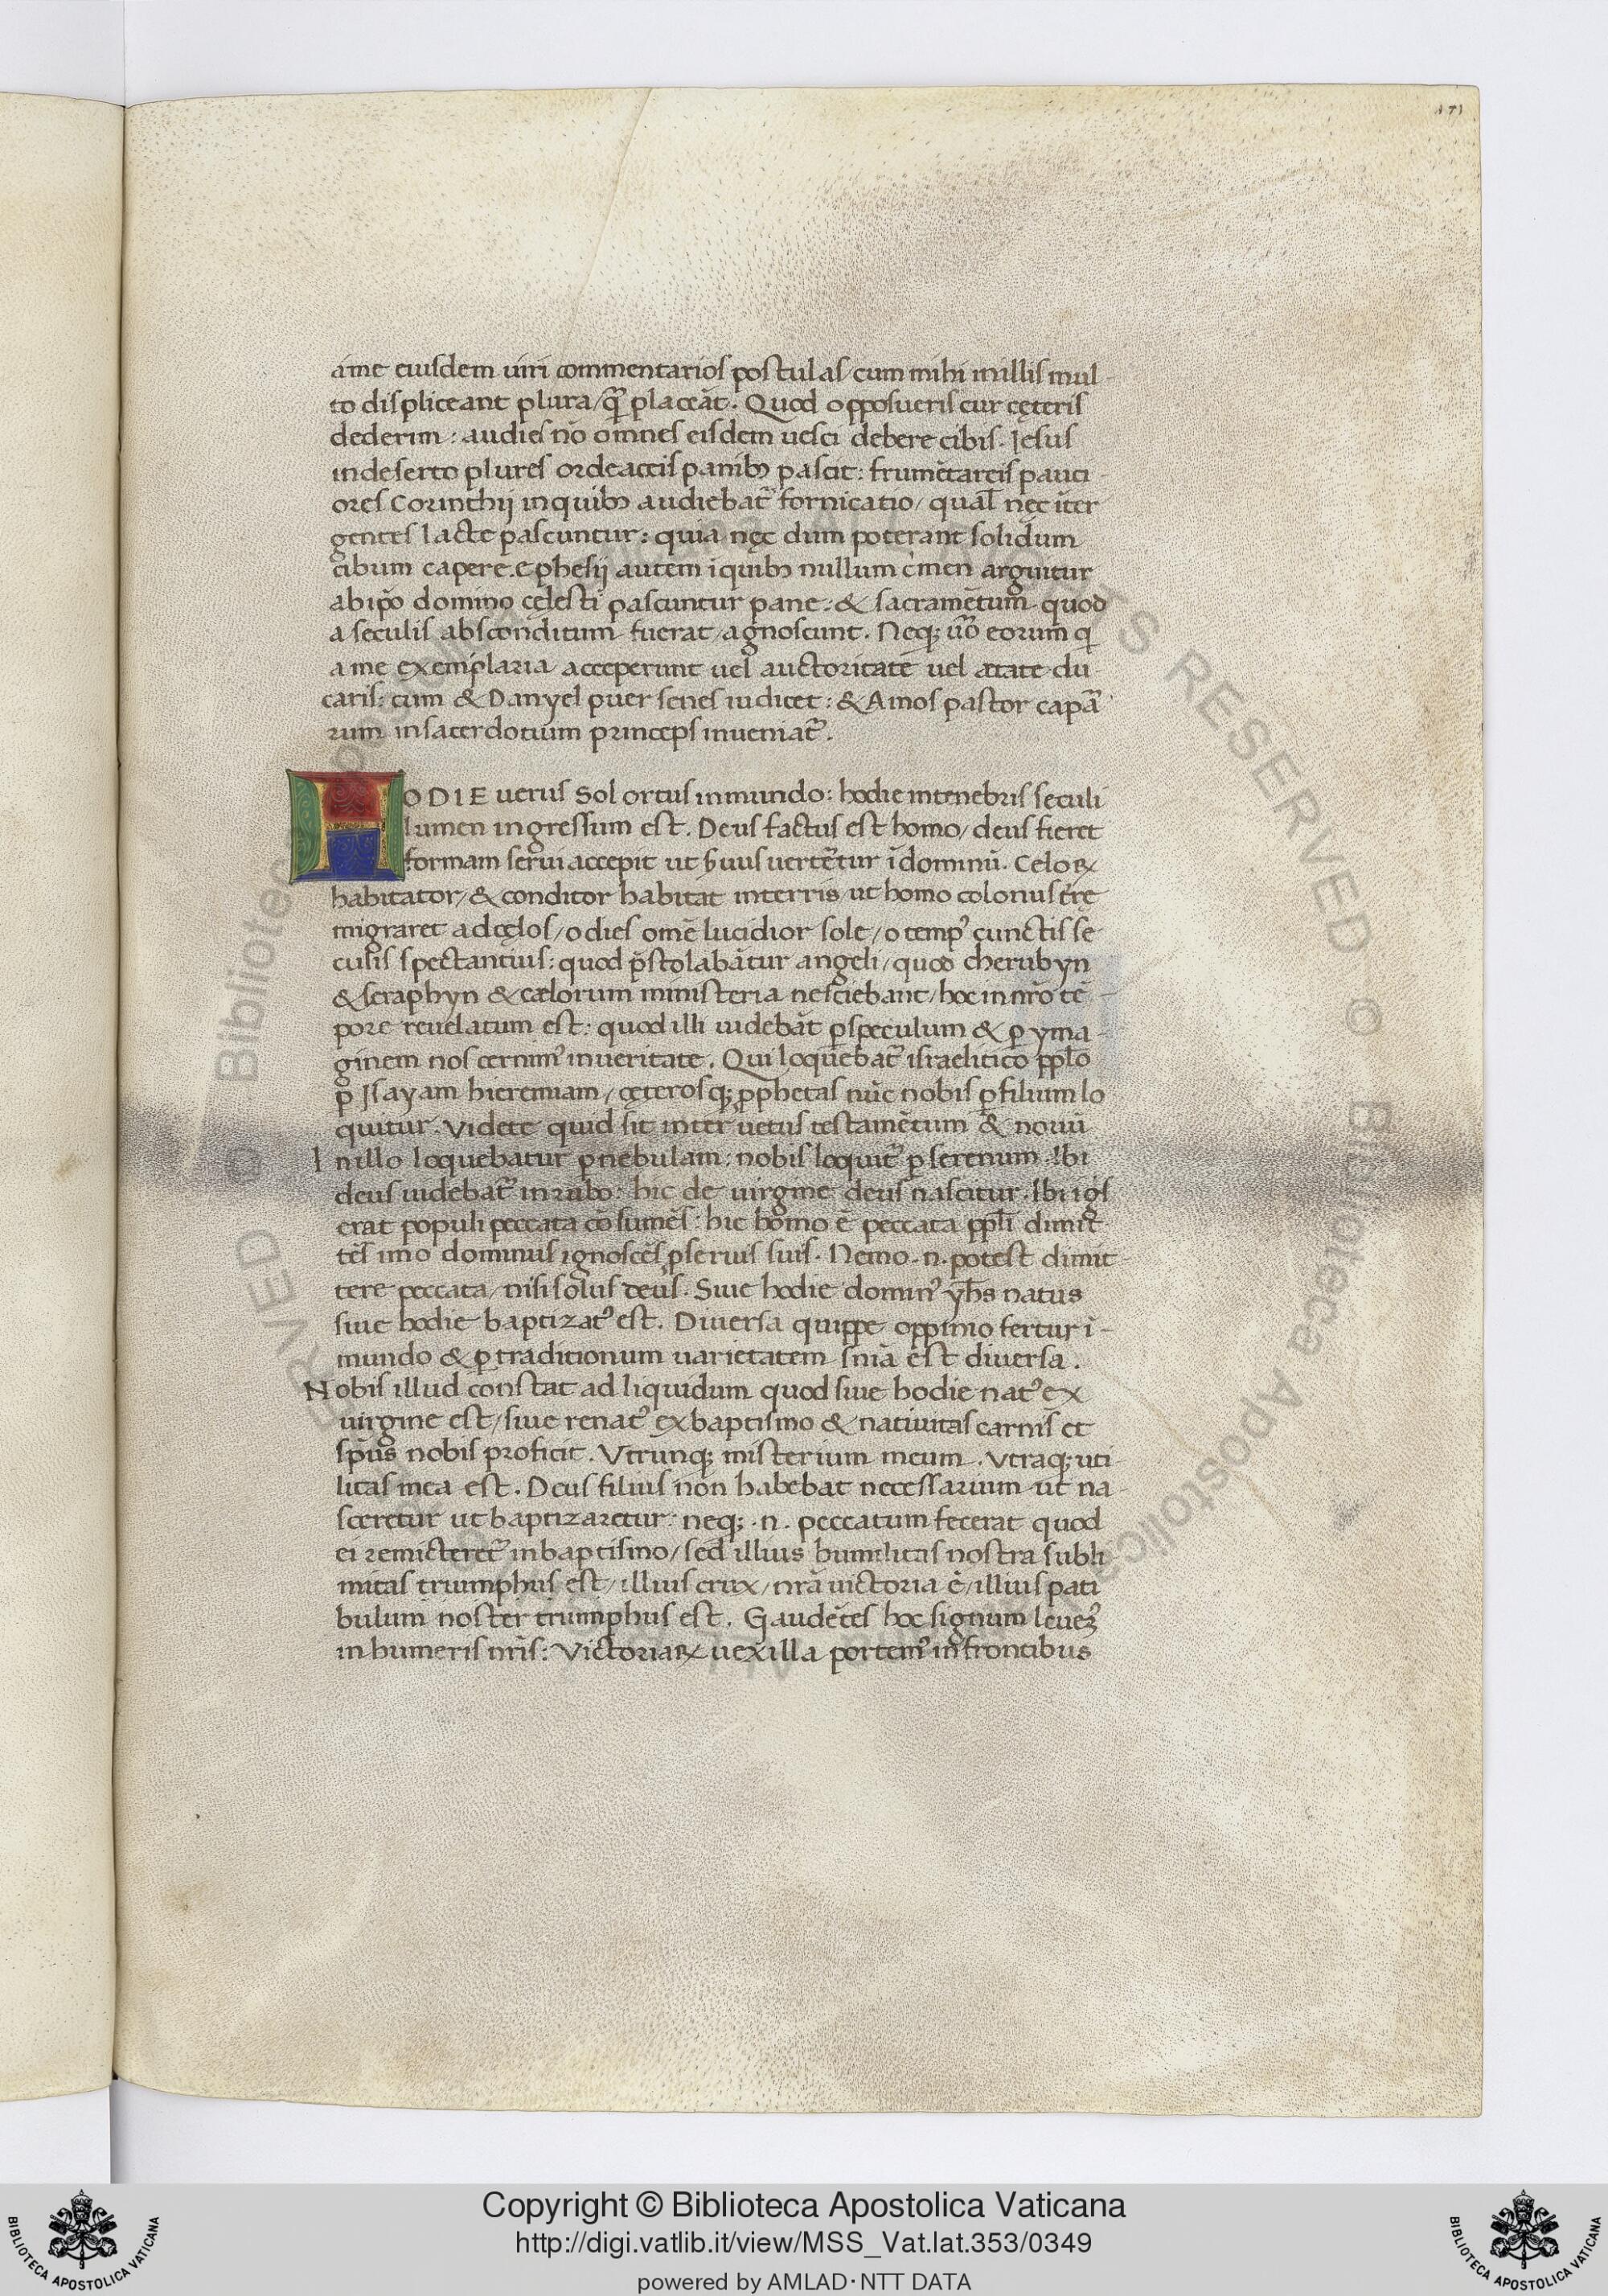 171
ame eiusdem uiri commentarios postulas/ cum mihi in illis mul-
to displiceant plura/ q̃ placeāt. Quod opposueris cur cęteris
dederim: audies nō omnes eisdem uesci debere cibis. Iesus
in deserto plures ordeaceis panibꝫ pascit: frumētaceis pauci
ores Corinthij in quibꝫ audiebat᷑ fornicatio/ qual̄ nęc īter
gentes lacte pascuntur: quia nęc dum poterant solidum
cibum capere. ephesij autem ī quibꝫ nullum cͥmen arguitur
ab ip̄o domino cęlesti pascuntur pane: & sacramētum quod
a seculis absconditum fuerat/ agnoscunt. Neqꝫ ūo eorum qͥ
a me exemplaria acceperunt uel auctoritate uel ętate du
caris: cum & Danyel puer senes iudicet: & Amos pastor capā
rum in sacerdotium princeps inueniat᷑.
HODIE uerus Sol ortus in mundo: hodie in tenebris seculi
lumen ingressum est. Deus factus est homo/ deus fieret
formam serui accepit ut ẜuus uertētur ī dominū. Celoꝝ
habitator/ & conditor habitat in terris/ ut homo colonus t̄rę
migraret ad cęlos/ o dies omē lucidior sole/ o tempꝰ cunctis se
culis spectantius: quod p̄stolabātur angeli/ quod cherubyn
& seraphyn & cælorum ministeria nesciebant/ hoc in nr̄o tē-
pore reuelatum est: quod illi uidebāt ꝑ speculum & ꝑ yma-
ginem nos cernimꝰ in ueritate. Qui loquebat᷑ israelitico pp̄lo
ꝑ Isayam hieremiam/ cęterosqꝫ ꝓphetas nūc nobis ꝑ filium lo
quitur. Videte quid sit inter uetus testamētum & nouū
In illo loquebatur ꝑ nebulam: nobis loquit᷑ ꝑ serenum. Ibi
deus uidebat᷑ in rubo: hic de uirgine deus nascitur. Ibi igͥs
erat populi peccata cōsumēs: hic homo ē peccata pp̄li dimit
tēs imo dominus ignoscēs ꝓ seruis suis. Nemo .n. potest dimit-
tere peccata/ nisi solus deus. Siue hodie dominꝰ yh̄s natus
siue hodie baptizatꝰ est. Diuersa quippe oppinio fertur ī-
mundo & ꝑ traditionum uarietatem sn̄ia est diuersa.
Nobis illud constat ad liquidum quod siue hodie natꝰ ex
uirgine est/ siue renatꝰ ex baptismo & natiuitas carnis et
sp̄us nobis proficit. Vtrunqꝫ misterium meum. Vtraqꝫ uti-
litas mea est. Deus filius non habebat necessarium ut na-
sceretur ut baptizaretur: neqꝫ .n. peccatum fecerat quod
ei remicteret᷑ in baptismo/ sed illius humilitas nostra subli
mitas triumphus est/ illius crux/ nr̄a uictoria ē/ illius pati
bulum noster triumphus est. Gaudētes hoc signum leuemꝰ
in humeris nr̄is: Victoriaꝝ uexilla portemꝰ in frontibus
Copyright © Biblioteca Apostolica Vaticana
http://digi.vatlib.it/view/MSS_Vat.lat.353/0349
powered by AMLAD·NTT DATA
BIBLIOTECA APOSTOLICA VATICANA
BIBLIOTECA APOSTOLICA VATICANA